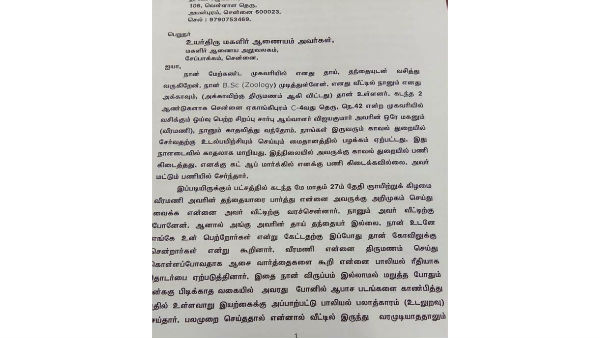 106, வெள்ளாள தெரு,
அயன்புரம், சென்னை 600023,
செல் : 9790753469.
பெறுநர்
உயர்திரு மகளிர் ஆணையம் அவர்கள்,
மகளிர் ஆணைய அலுவலகம்,
சேப்பாக்கம், சென்னை,
ஐயா,
நான் மேற்கண்ட முகவரியில் எனது தாய், தந்தையுடன் வசித்து
வருகிறேன். நான் B.Sc (Zoology) முடித்துள்ளேன். எனது வீட்டில் நானும் எனது
அக்காவும், (அக்காவிற்கு திருமணம் ஆகி விட்டது) தான் உள்ளனர். கடந்த 2
ஆண்டுகளாக சென்னை ஏகாங்கிபுரம் C-4வது தெரு, நெ.42 என்ற முகவரியில்
வசிக்கும் ஓய்வு பெற்ற சிறப்பு சார்பு ஆய்வாளர் விஜயகுமார் அவரின் ஒரே மகனும்
(வீரமணி), நானும் காதலித்து வந்தோம். நாங்கள் இருவரும் காவல் துறையில்
சேர்வதற்கு உடல்பயிற்சியும் செய்யும் மைதானத்தில் பழக்கம் ஏற்பட்டது. இது
நாளடைவில் காதலாக மாறியது. இந்நிலையில் அவருக்கு காவல் துறையில் பணி
கிடைத்தது. எனக்கு கட் ஆப் மார்க்கில் எனக்கு பணி கிடைக்கவில்லை. அவர்
மட்டும் பணியில் சேர்ந்தார்.
இப்படியிருக்கும் பட்சத்தில் கடந்த மே மாதம் 27ம் தேதி ஞாயிற்றுக் கிழமை
வீரமணி அவரின் தந்தையாரை பார்த்து என்னை அவருக்கு அறிமுகம் செய்து
வைக்க என்னை அவர் வீட்டிற்கு வரச்சொன்னார். நானும் அவர் வீட்டிற்கு
போனேன். ஆனால் அங்கு அவரின் தாய் தந்தையர் இல்லை. நான் உடனே
எங்கே உன் பெற்றோர்கள் என்று கேட்டதற்கு இப்போது தான் கோவிலுக்கு
சென்றார்கள் என்று கூறினார். வீரமணி என்னை திருமணம் செய்து
கொள்ளப்போவதாக ஆசை வார்த்தைகளை கூறி என்னை பாலியல் ரீதியாக
தொடர்பை ஏற்படுத்தினார். இதை நான் விருப்பம் இல்லாமல் மறுத்த போதும்
எனக்கு பிடிக்காத வகையில் அவரது போனில் ஆபாச படங்களை காண்பித்து
தில் உள்ளவாறு இயற்கைக்கு அப்பாற்பட்டு பாலியல் பலாத்காரம் (உடலுறவு)
செய்தார். பலமுறை செய்ததால் என்னால் வீட்டில் இருந்து வரமுடியாததாலும்
1